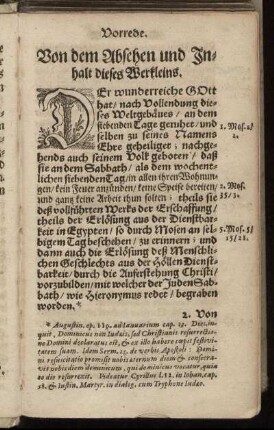 Vorrede.
Von dem Absehen und In-
halt dieses Werkleins.
DEr wunderreiche GOtt
hat/ nach Vollendung die-
ses Weltgebäues/ an dem
siebenden Tage geruhet/ und
selben zu seines Namens
Ehre geheiliget; nachge-
hends auch seinem Volk geboten/ daß
sie an dem Sabbath/ als dem wochent-
lichen siebenden Tag/ in allen ihren Wohnun-
gen/ kein Feuer anzünden/ keine Speise bereiten/
und ganz keine Arbeit thun solten; theils sie
deß vollführten Werks der Erschaffung/
theils der Erlösung aus der Dienstbar-
keit in Egypten/ so durch Mosen an sel-
bigem Tag beschehen/ zu erinnern; und
dann auch die Erlösung deß Menschli-
chen Geschlechts aus der Höllen Dienst-
barkeit/ durch die Auferstehung Christi/
vorzubilden/ mit welcher der Juden Sab-
bath/ wie Hieronymus redet/ begraben
worden.*
1. Mos. 2/
2.
2. Mos.
35/3.
5. Mos. 5/
15/22.
2. Von
* Augustin. ep. 119. ad Ianuarium cap. 13. Dies, in-
quit, Dominicus non Iudæis, sed Christianis resurrectio-
ne Domini declaratus est, & ex illo habere cœpit festivi-
tatem suam. idem Serm. 15. de verbis Apostoli. Domi-
ni resuscitatio promisit nobis æternum diem & consecra-
vit nobis diem dominicum, qui dominicus vocatur, quia
eo die resurrexit. Videatur Cyrillus l. 12. in Iohan. cap.
58. & Iustin. Martyr. in dialog. cum Tryphone Iudæo.